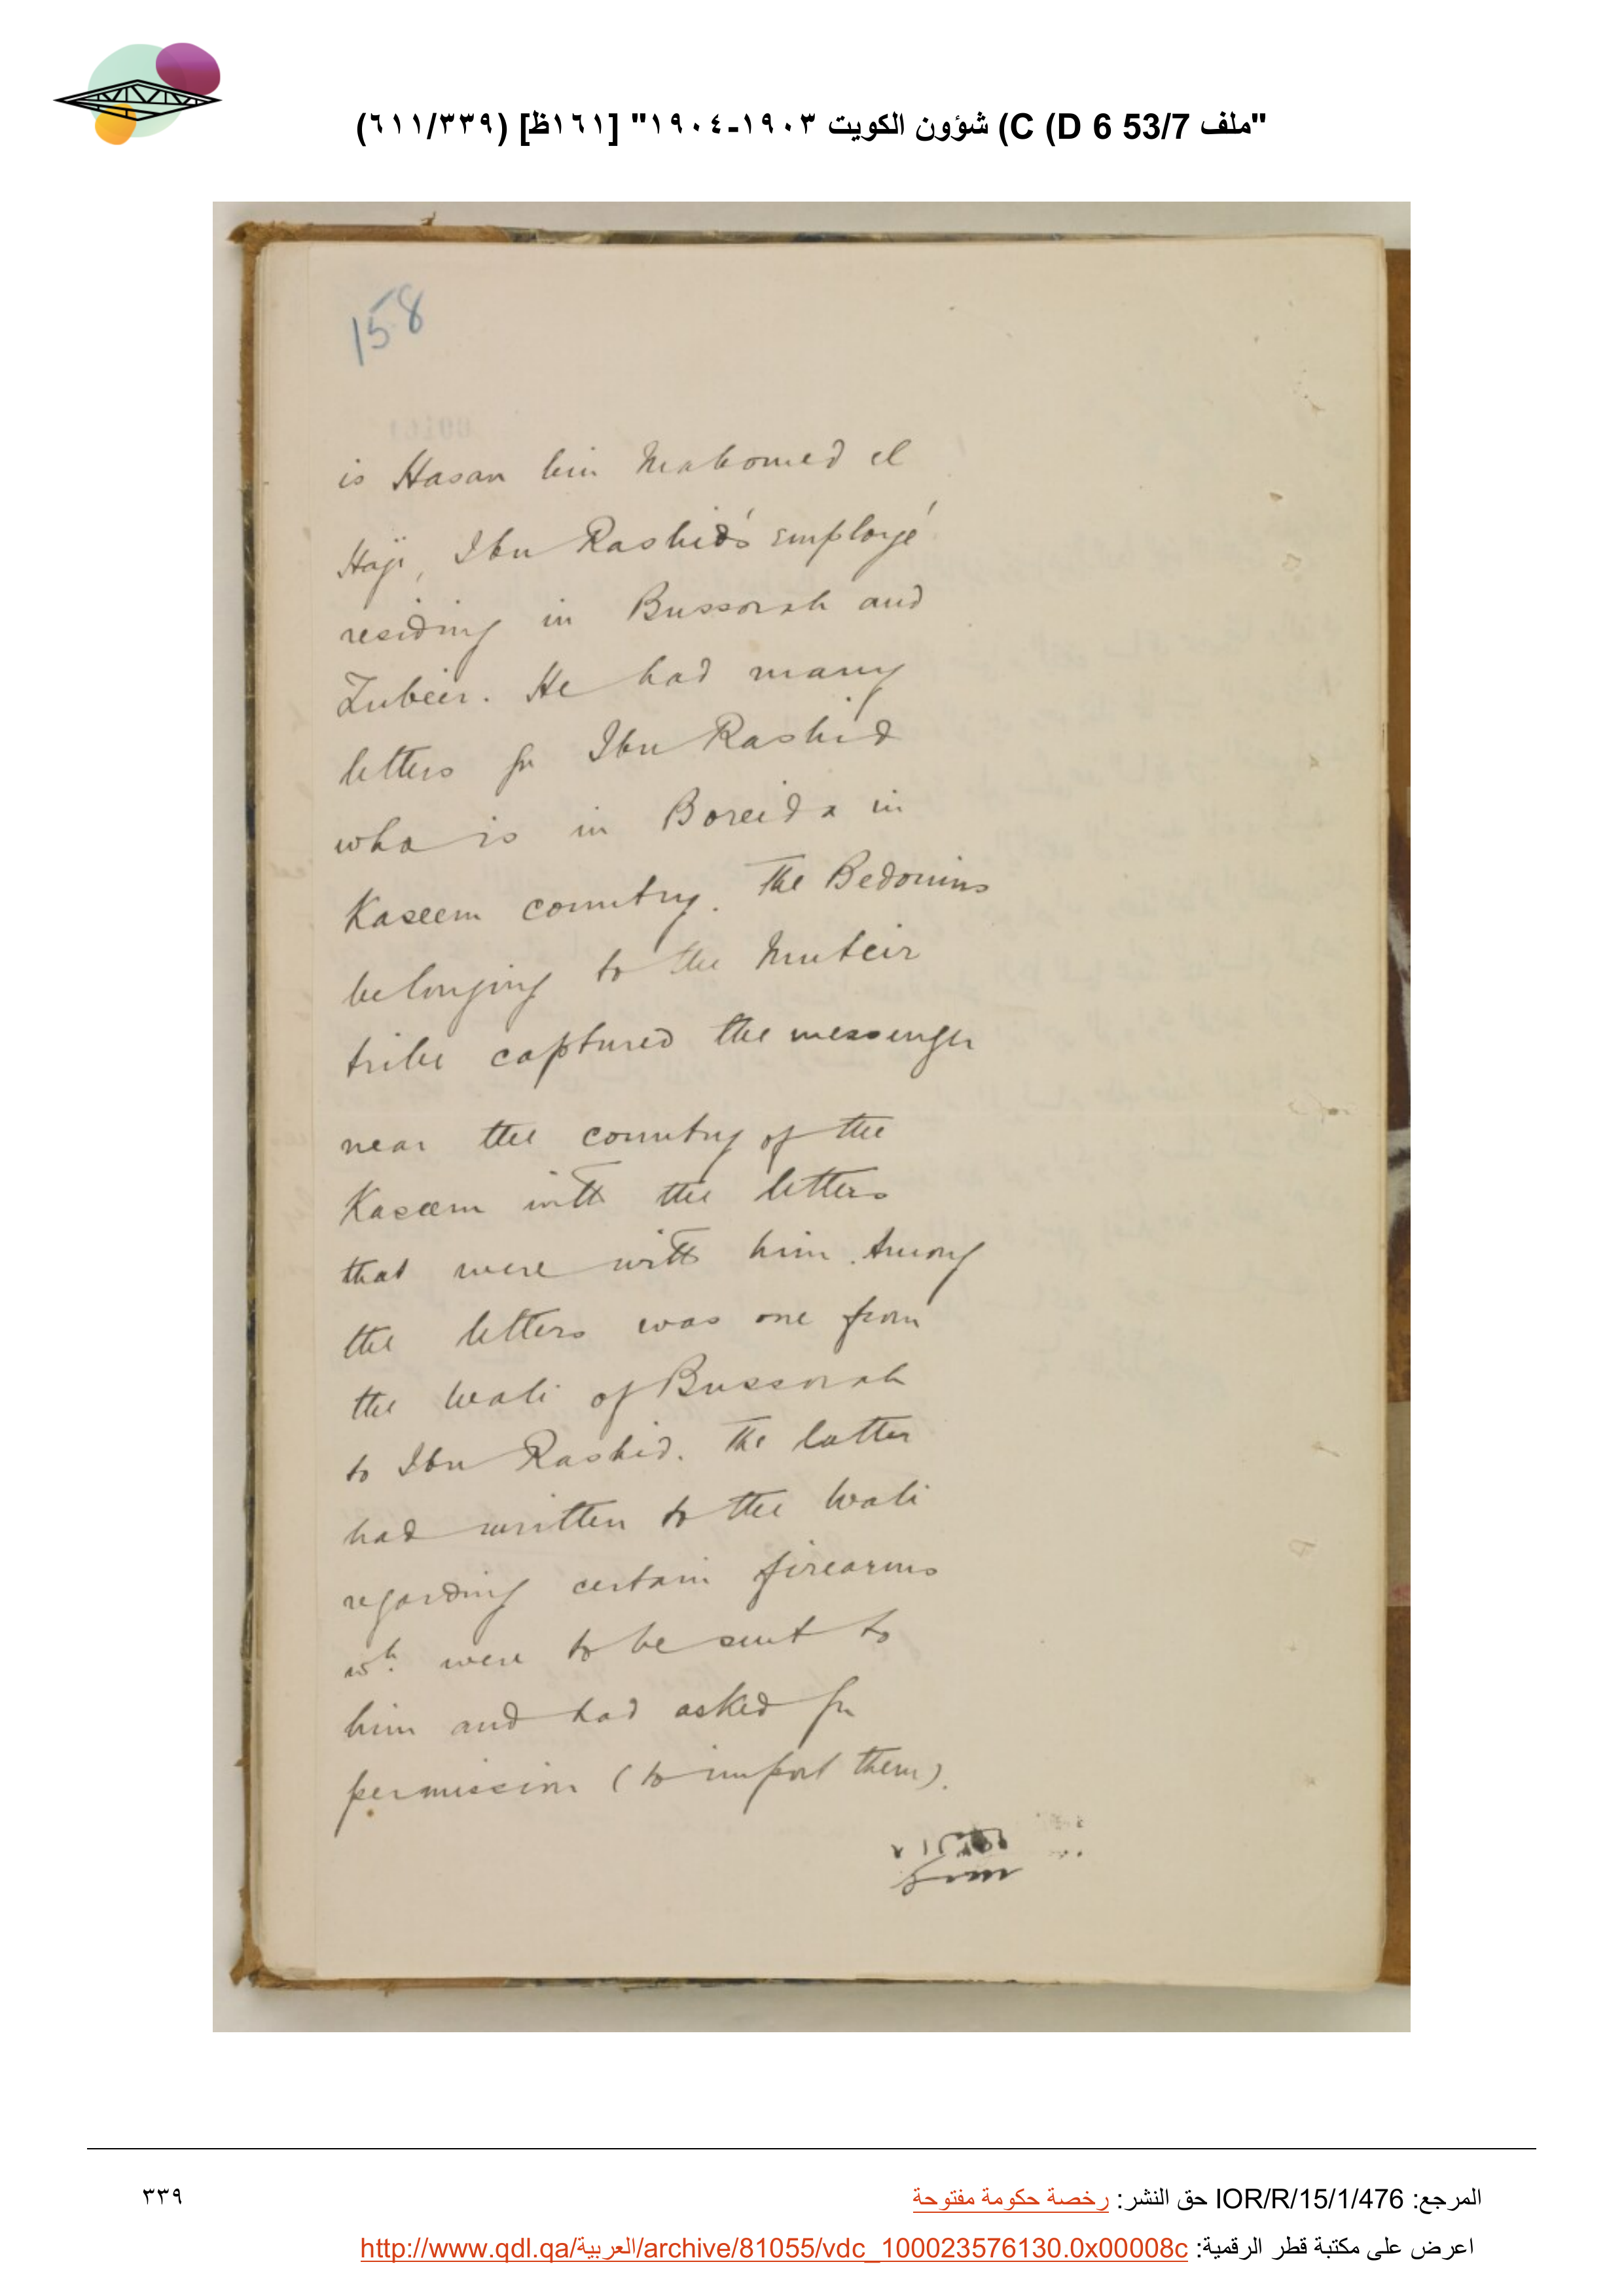 "ملف 53/7 C (D 6) شؤون الكويت ١٩٠٣-١٩٠٤" [١٦١ظ] (٦١١/٣٣٩)
158
is Hasan bin Mahomed el
Haji, Ibn Rashid's employé
residing in Bussorah and
Zubeir. He had many
letters fr Ibn Rashid
who is in Boreida in
Kaseem country. The Bedouins
belonging to the Muteir
tribe captured the messenger
near the country of the
Kaseem with the letters
that were with him. Among
the letters was one from
the Wali of Bussorah
to Ibn Rashid. The latter
had written to the Wali
regarding certain firearms
wh. were to be sent to
him and had asked fr
permission (to import them).
المرجع: IOR/R/15/1/476 حق النشر: رخصة حكومة مفتوحة
٣٣٩
اعرض على مكتبة قطر الرقمية: http://www.qdl.qa/العربية/archive/81055/vdc_100023576130.0x00008c